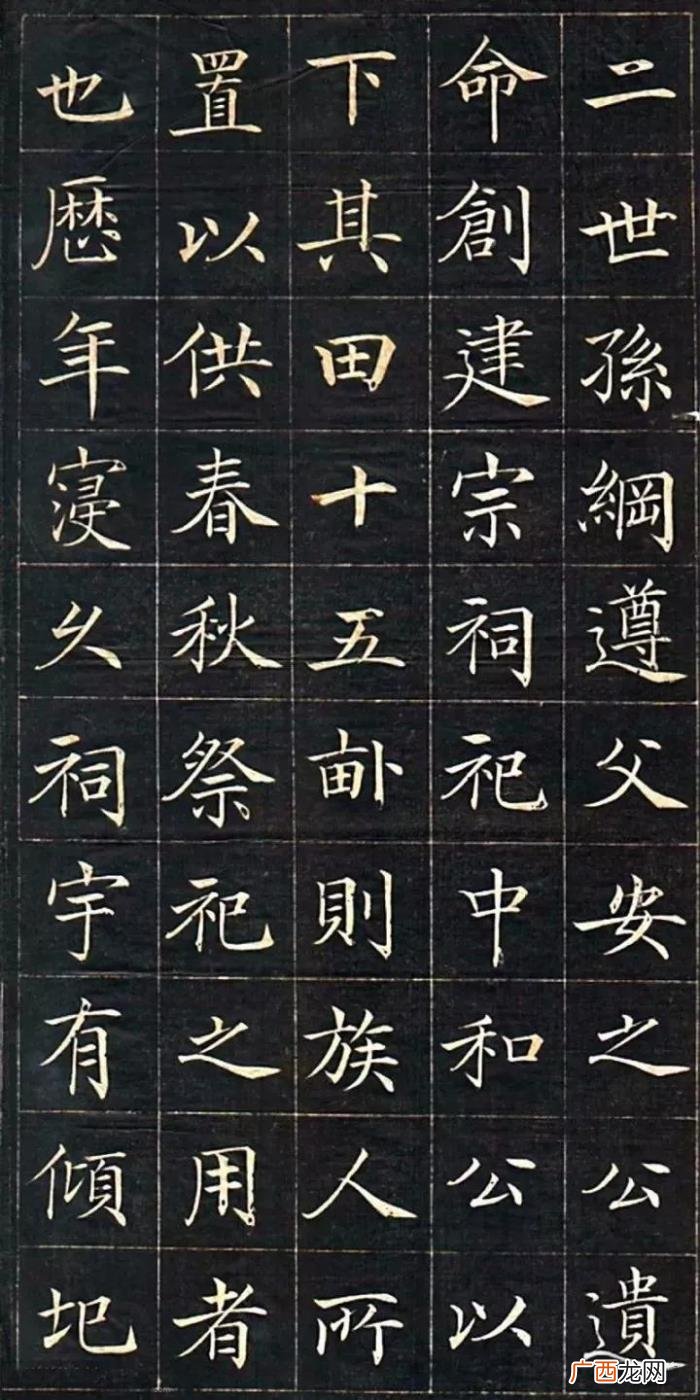 二世孫綱遵父安之公遺
命創建宗祠祀中和公以
下其田十五畝則族人所
置以供春秋祭祀之用者
也歷年寖久祠宇有傾圮
广西龙网